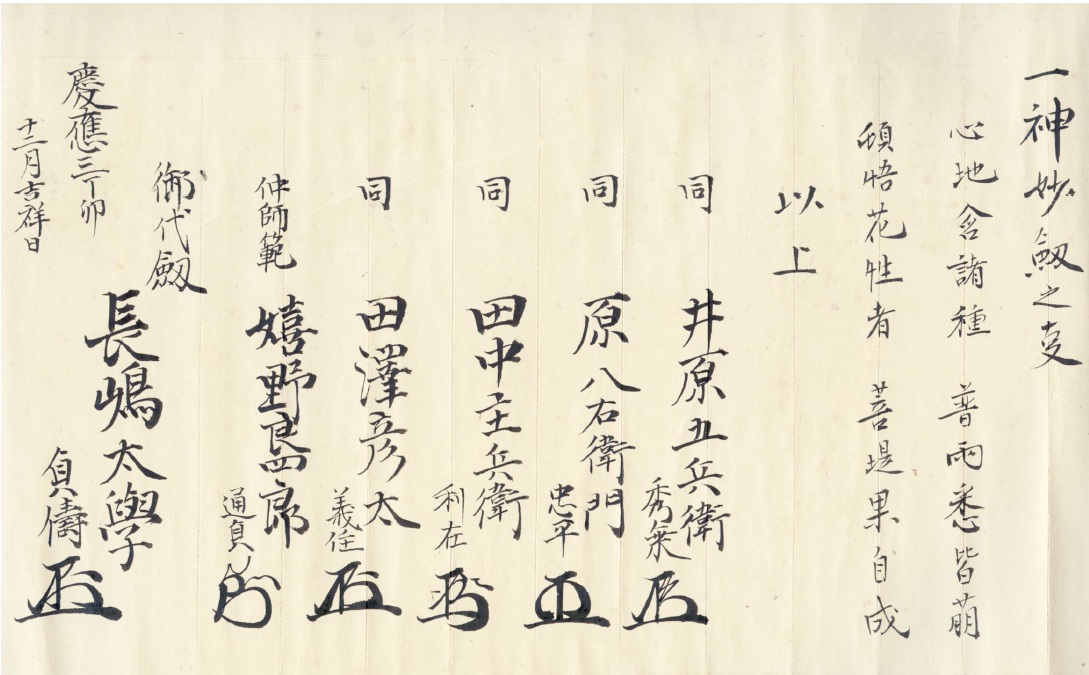 一神妙劔之事
心地含諸種　普雨悉皆萌
頓悟花性者　菩提果自成
以上
同　井原五兵衛
秀乗
同　原八右衛門
忠平
同　田中主兵衛
利在
同　田澤彦太
義住
仲師範　嬉野良四郎
通貞
御代劔
長嶋太學
貞儔
慶應三丁卯
十二月吉祥日